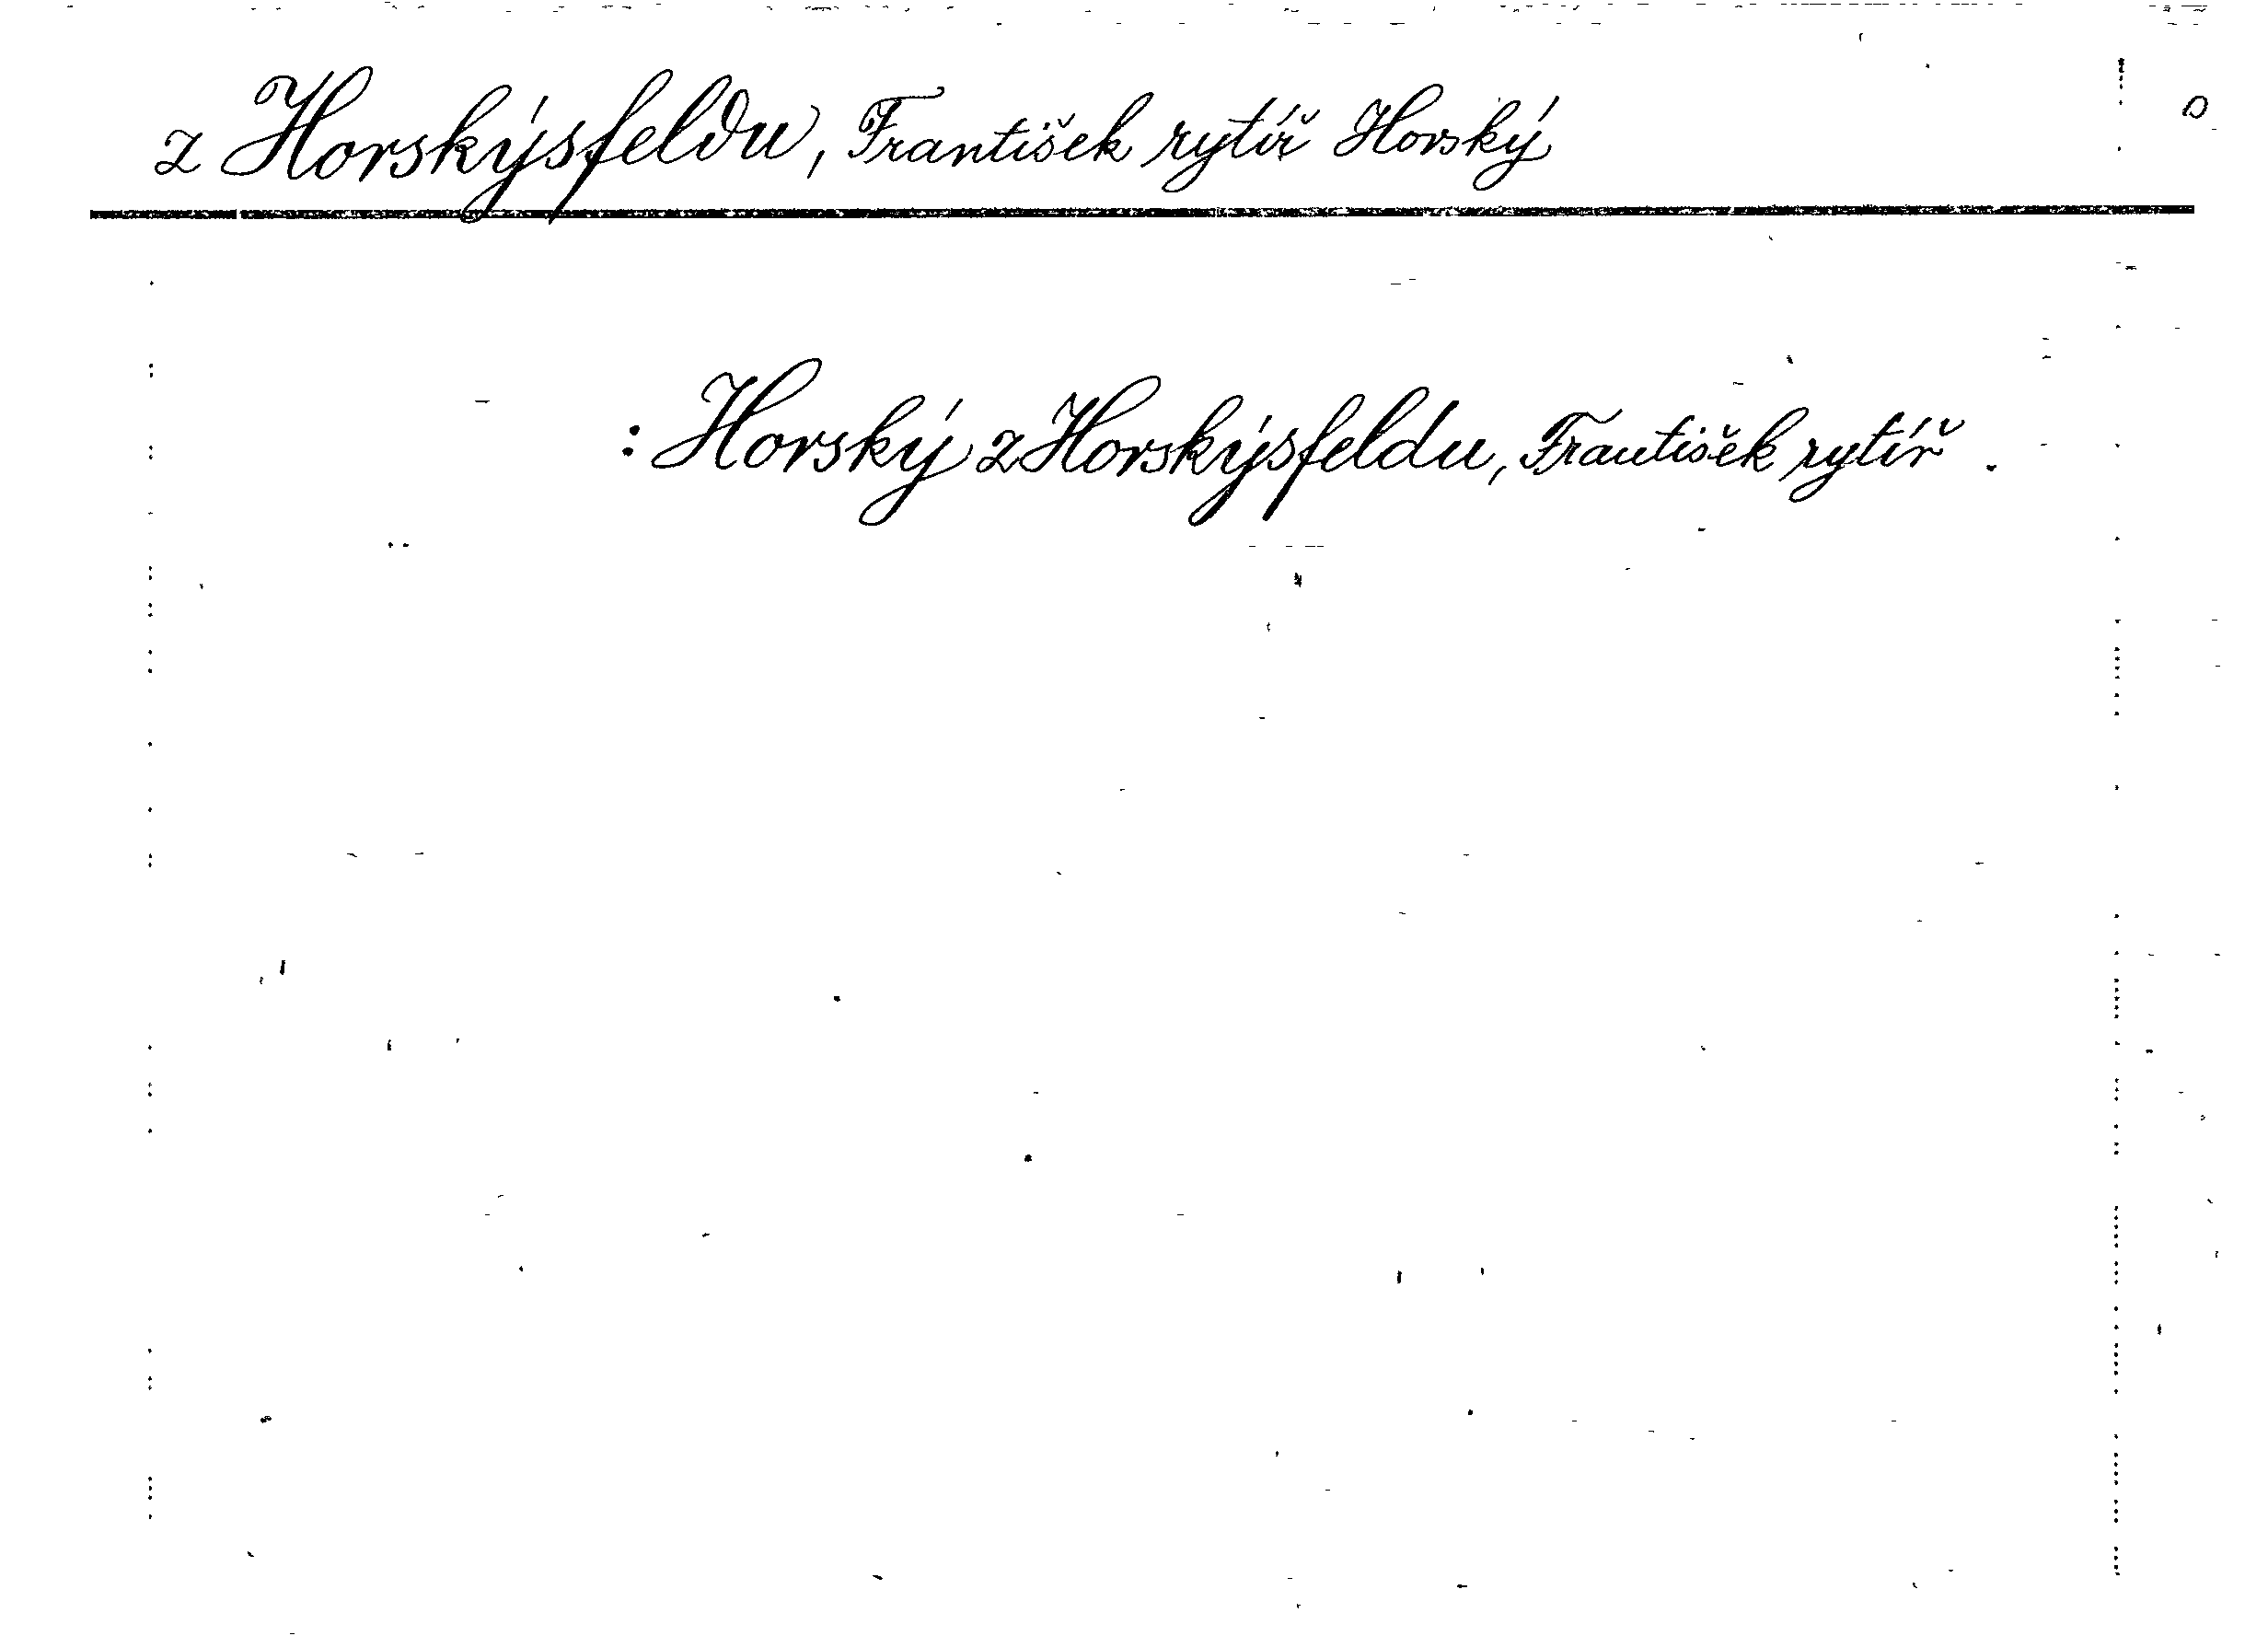 z Horskýsfeldu, František rytíř Horský
: Horský z Horskýsfeldu, František rytíř.